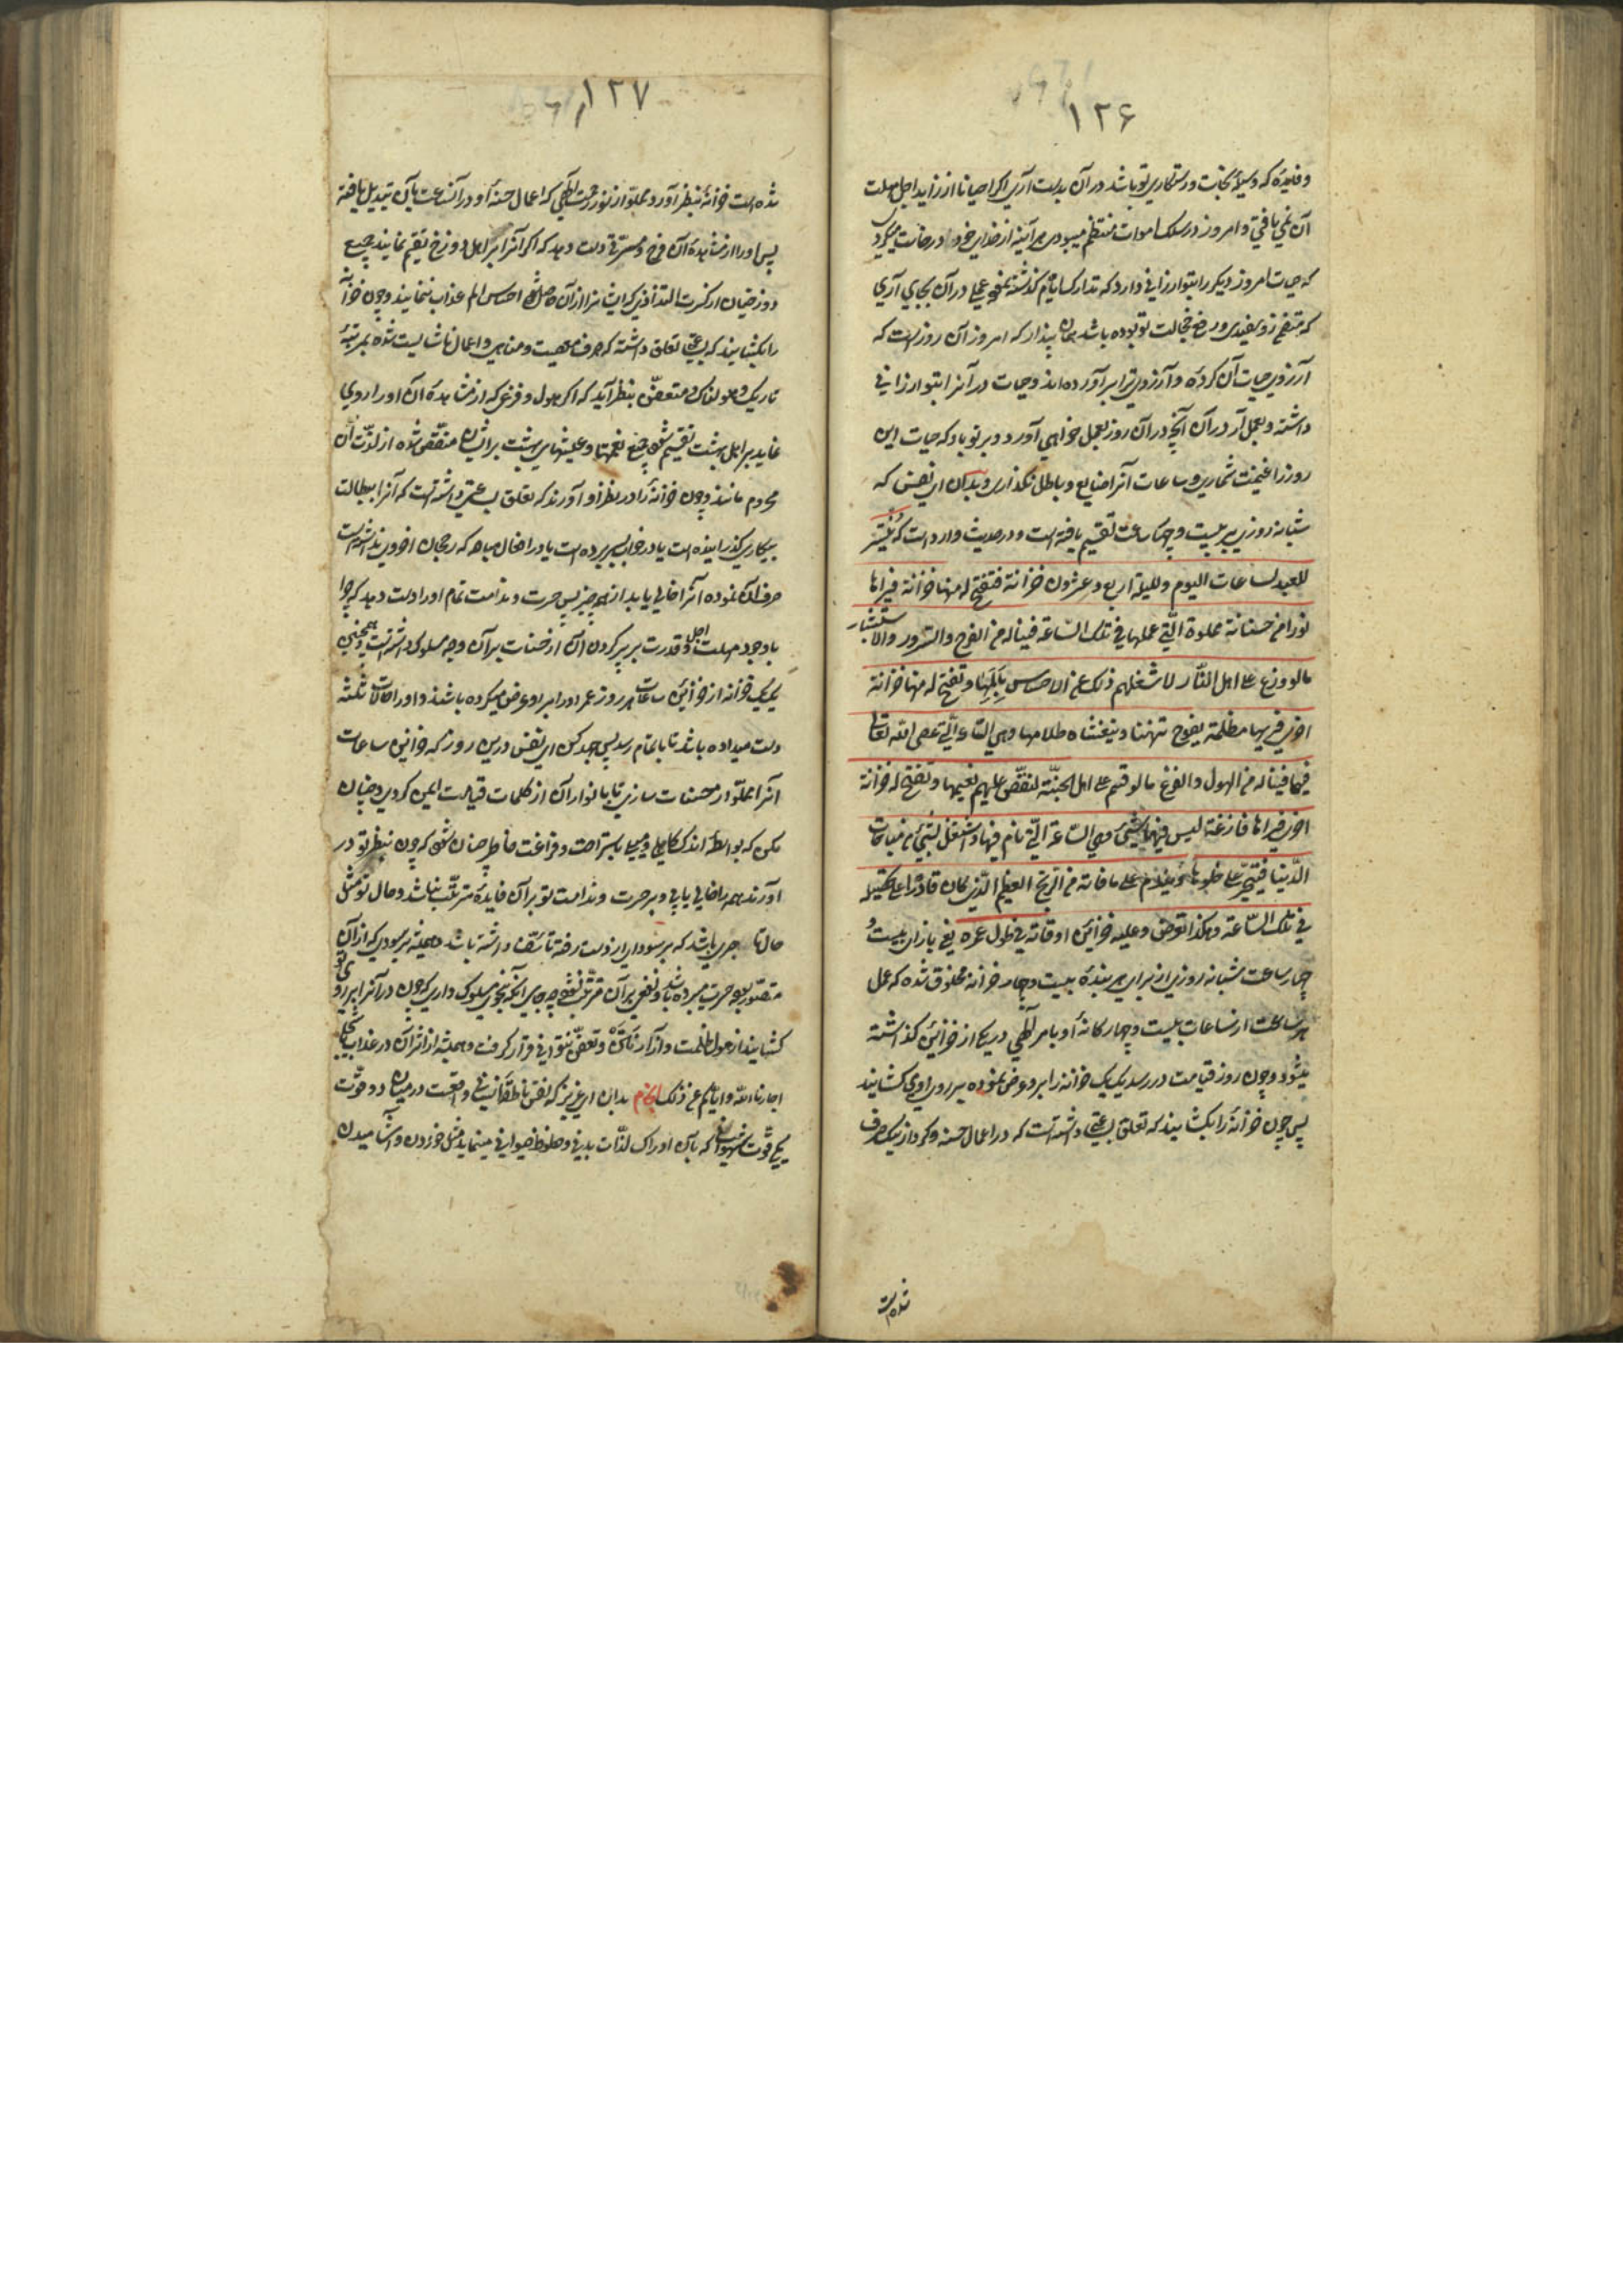 ۱۲۶
و فایده که وسیلهٔ نجات و رستکاری تو باشد در آن بدست آری اکر احیانا از زاید اجل مهلت
آن نمی یافتی و امروز در سلک اموات منتظم میبودی هر آینه از خدای خود درخواست میکردی
که حیات امروز دیکر را بتو ارزانی دارد که تدارک ایام کذشته نموده عملی در آن بجای آری
که متضمن سفیدی و رفع خجالت تو بوده باشد پندار که امروز آن روز است که
آرزوی حیات آن کرده و آرزوی ترا برآورده اند و حیات در آنرا بتو ارزانی
داشته و بعمل آر در آن آنچه در آن روز بعمل خواهی آورد و بر تو باد که حیات این
روز را غنیمت شماری و ساعات آنرا ضایع و باطل نکذاری و بدان ای نفس که
شبانه روزی بر بیست و چهار ساعت تقسیم یافته است و در حدیث وارد است که ینشر
للعبد لساعات الیوم و اللیلة اربع و عشرون خزانة فتفتح له منها خزانة فیراها
نورا من حسناته مملوة الّتی عملها فی تلک السّاعة فیناله من الفرح و السّرور و الاستبشار
ما لو وزع علی اهل النّار لاشغلهم ذلک عن الاحساس بِاَلَمِها و تفتح له منها خزانة
اخری فیریها مظلمة یفوح نتنها و یتغشاه ظلامها و هی السّاعة الّتی عصی الله تعالی
فیها فیناله من الهول و الفزع ما لو قسم علی اهل الجنّة لنغّص علیهم نعیمها و تفتح له خزانة
اخری فیراها فارغة لیس فیها شیئ و هی السّاعة الّتی نام فیها و اشتغل بشیئ من مباحات
الدّنیا فیتحسّر علی خلوها و یندم علی ما فاته من الرّبح العظیم الّذی کان قادرًا علی تحصیله
فی تلک السّاعة و هکذا تعرض علیه خزائن اوقاته فی طول عمره یعنی بازای بیست و
چهار ساعت شبانه روزی از برای هر بنده بیست و چهار خزانه مخلوق شده که عمل
هر ساعت از ساعات بیست و چهار کانهٔ او بامر الهی در یکی از خزائن کذاشته
میشود و چون روز قیامت در رسد یک یک خزانه را بر او عرض نموده بر روی او می کشایند
پس چون خزانهٔ را بکشایند که تعلق بساعتی داشته است که در اعمال حسنه و کردار نیک صرف
شده است
۱۲۷
شده است خزانهٔ بنظر آورد مملو از نور رحمت الهی که اعمال حسنهٔ او در آن ساعت بآن تبدیل یافته
پس او را از مشاهدهٔ آن فرح و مسرّتی دست دهد که اکر آنرا بر اهل دوزخ تقسیم نمایند جمیع
دوزخیان از کثرت التذاذی که ایشانرا از آن حاصل شود احساس الم عذاب ننمایند و چون خزانهٔ
را بکشایند که بساعتی تعلق داشته که صرف معصیت و مناهی و اعمال ناشایست شده بمرتبهٔ
تاریک و هولناک و متعفّن بنظر آید که اکر هول و فزعی که از مشاهدهٔ آن او را روی
نماید بر اهل بهشت تقسیم شود جمیع نعمتها و عیشهای بهشت بر ایشان منغّص شده از لذّت آن
محروم مانند و چون خزانهٔ را در نظر او آورند که تعلق بساعتی داشته است که آنرا ببطالت
و بیکاری کذرانیده است یا در خواب بسر برده است یا در افعال مباحه که رجحان اخروی نداشته است
صرف آن نموده آنرا خالی یابد از همه چیز پس حسرت و ندامت تمام او را دست دهد که چرا
با وجود مهلت اجل و قدرت بر پر کردن آن از حسنات بر آن وجه سلوک داشته است و همچنین
یک یک خزانه از خزائن ساعات هر روز عمر او را بر او عرض میکرده باشند و او را حالات ثلثه
دست میداده باشد تا باتمام رسد پس جهد کن ای نفس درین روز که خزائن ساعات
آنرا مملو از حسنات سازی تا بانوار آن از ظلمات قیامت ایمن کردی و چنان
مکن که بواسطهٔ اندک کاهلی و میل باستراحت و فراغت خاطر چنان شود که چون بنظر تو در
آورند همه را خالی یابی و بر حسرت و ندامت تو بر آن فایده مترتّب نباشد و حال تو مثل
حال تاجری باشد که بر سودای از دست رفته تاسّف داشته باشد و همیشه بر سودی که از آن
متصوّر بوده حسرت میبرده باشد و نفعی بر آن مترتّب نشود چه جای آنکه بنحوی سلوک داری که چون در آنرا بر روی تو
کشایند از هول ظلمت و آزار نتن و تعفّن نتوانی قرار کرفت و همیشه از اثر آن در عذاب باشی
اجارنا الله و ایاکم عن ذلک انجام بدان ای عزیز که نفس ناطقهٔ انسانی واقعست در میان دو قوّت
یکی قوّت شهوانی که بآن ادراک لذّات بدنی و حظوظ حیوانی مینماید مثل خوردن و آشامیدن